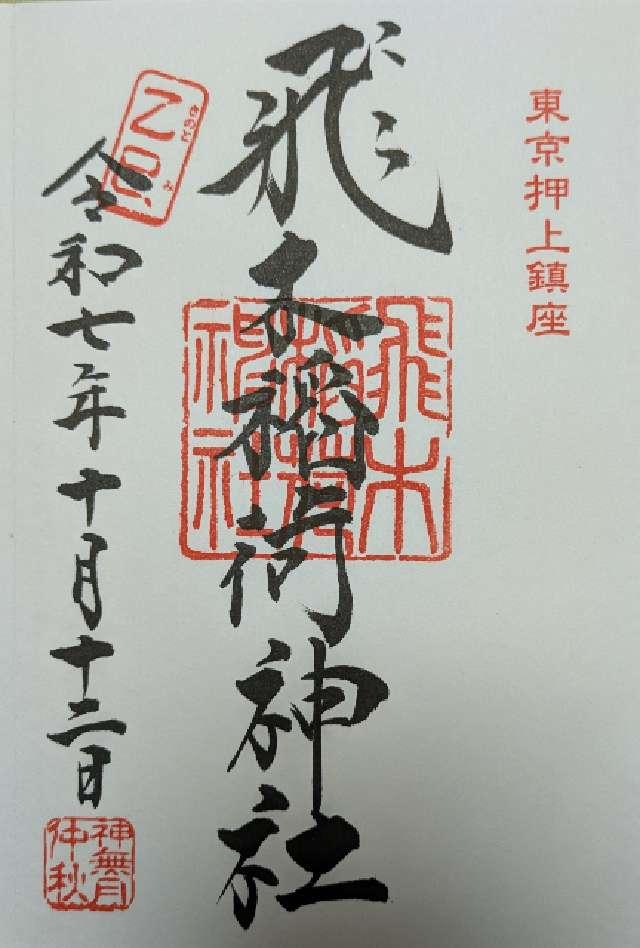 東京押上鎮座
飛木稲荷神社
飛木稲荷神社
乙巳
きのと み
令和七年十月十二日
神無月
仲秋